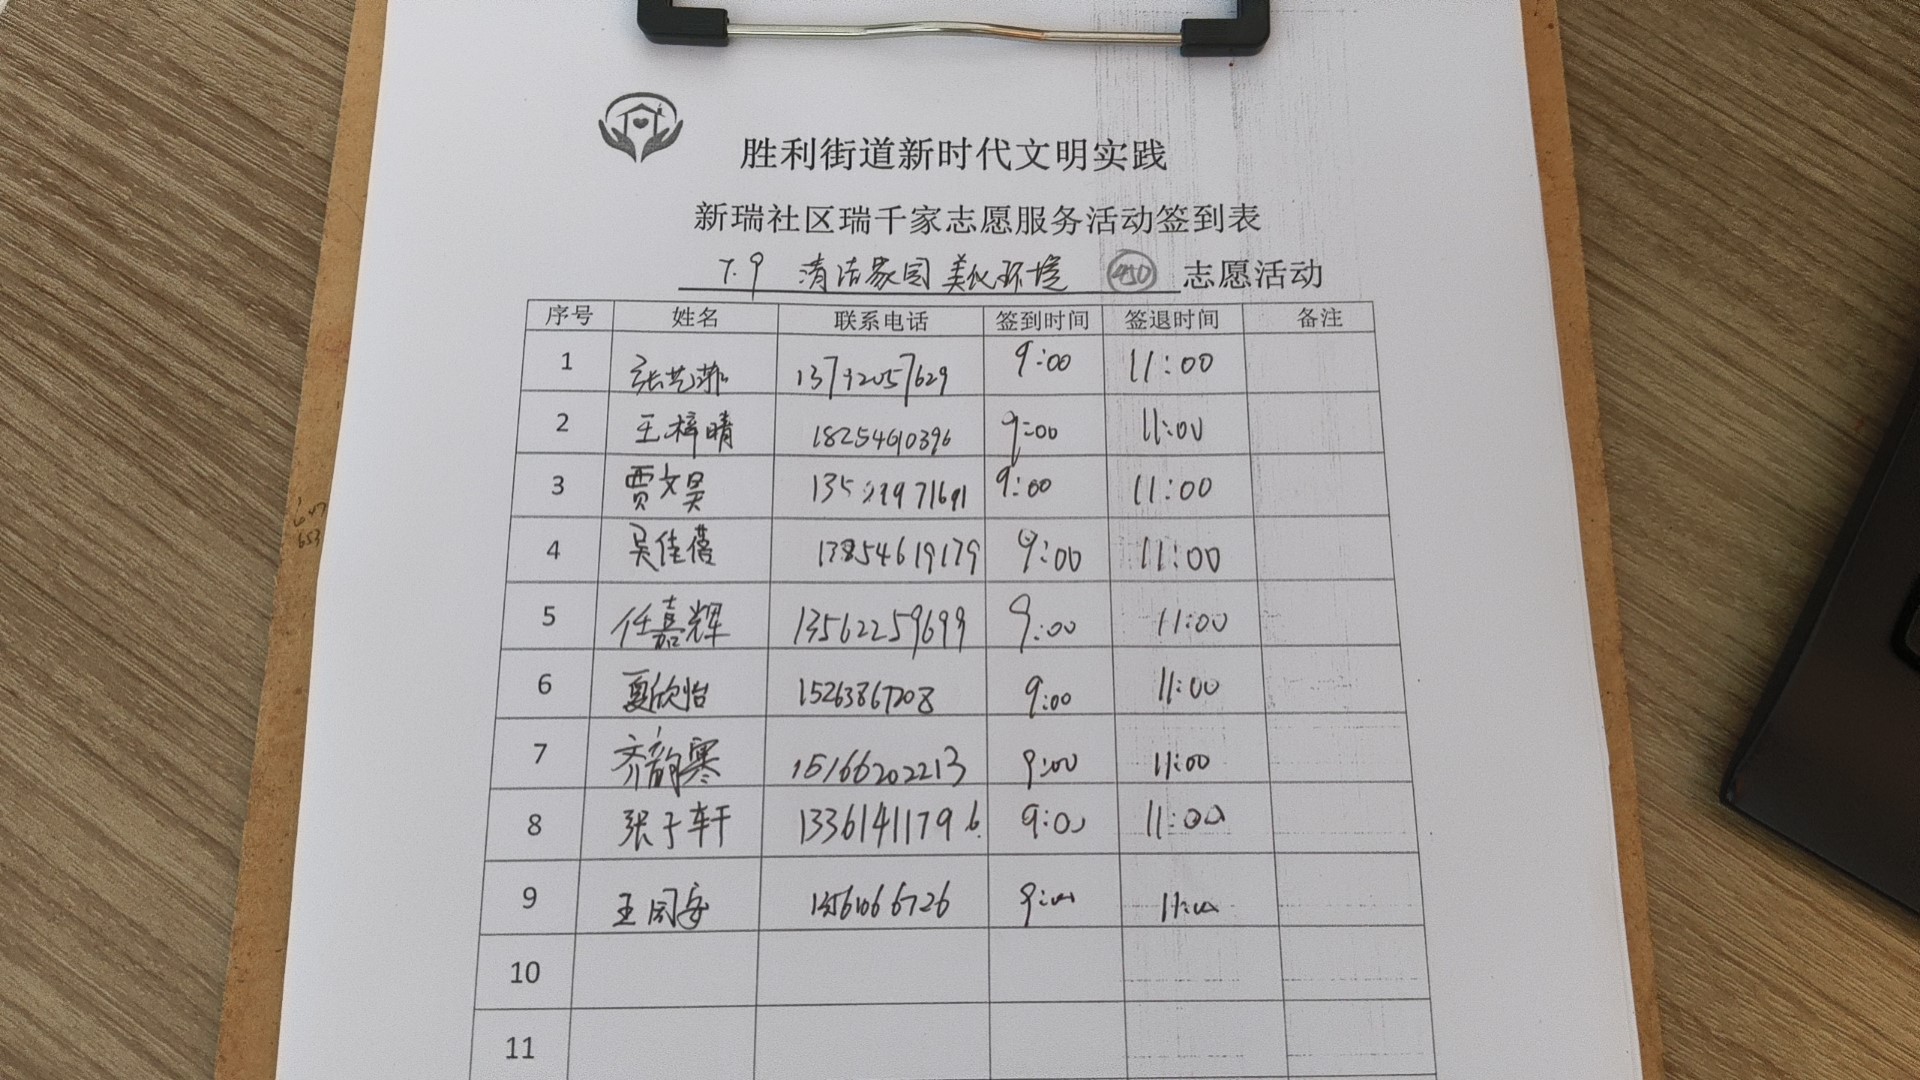 胜利街道新时代文明实践
新瑞社区瑞千家志愿服务活动签到表
7.9 清洁家园 美化环境 450 志愿活动
序号 姓名 联系电话 签到时间 签退时间 备注
1 张艺菲 13792057629 9:00 11:00
2 王梓晴 18254610396 9:00 11:00
3 贾文昊 9:00 11:00
4 吴佳蓓 13854619179 9:00 11:00
5 任嘉辉 13562259699 9:00 11:00
6 夏欣怡 15263867208 9:00 11:00
7 齐韵寒 15166202213 9:00 11:00
8 张子轩 13361411796 9:00 11:00
9 王同安 9:00 11:00
10
11